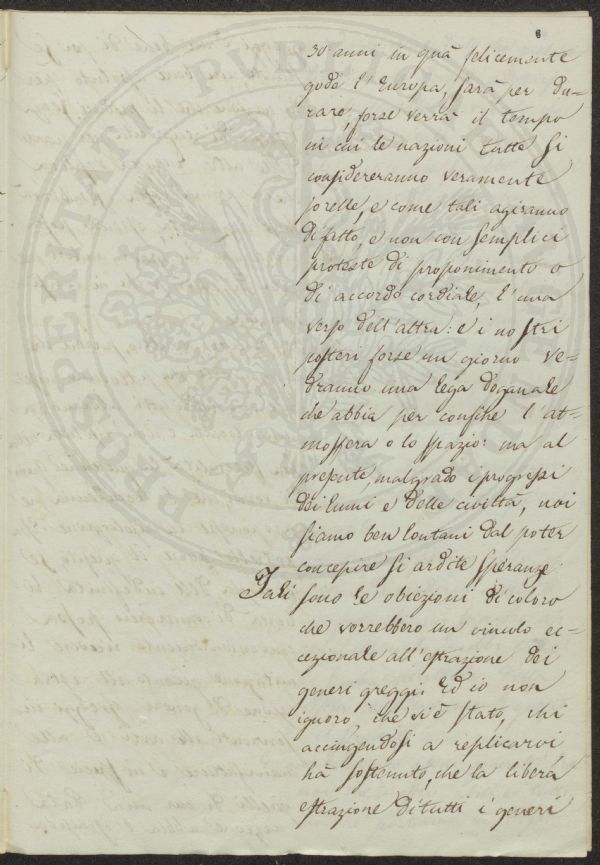 8
30 anni in quà felicemente
gode l'Europa, sarà per du-
rare, forse verrà il tempo
in cui le nazioni tutte si
considereranno veramente
sorelle, e come tali agiranno
di fatto, e non con semplici
proteste di proponimento o
di accordo cordiale, l'una
verso dell'altra: e i nostri
posteri forse un giorno ve-
dranno una lega doganale
che abbia per confine l'at-
mosfera o lo spazio: ma al
presente, malgrado i progressi
dei lumi e delle civiltà, noi
siamo ben lontani dal poter
concepire sì ardite speranze
Tali sono le obiezioni di coloro
che vorrebbero un vincolo ec-
cezionale all'estrazione dei
generi greggi. Ed io non
ignoro, che vi è stato, chi
accingendosi a replicarvi
hà sostenuto, che la libera
estrazione di tutti i generi